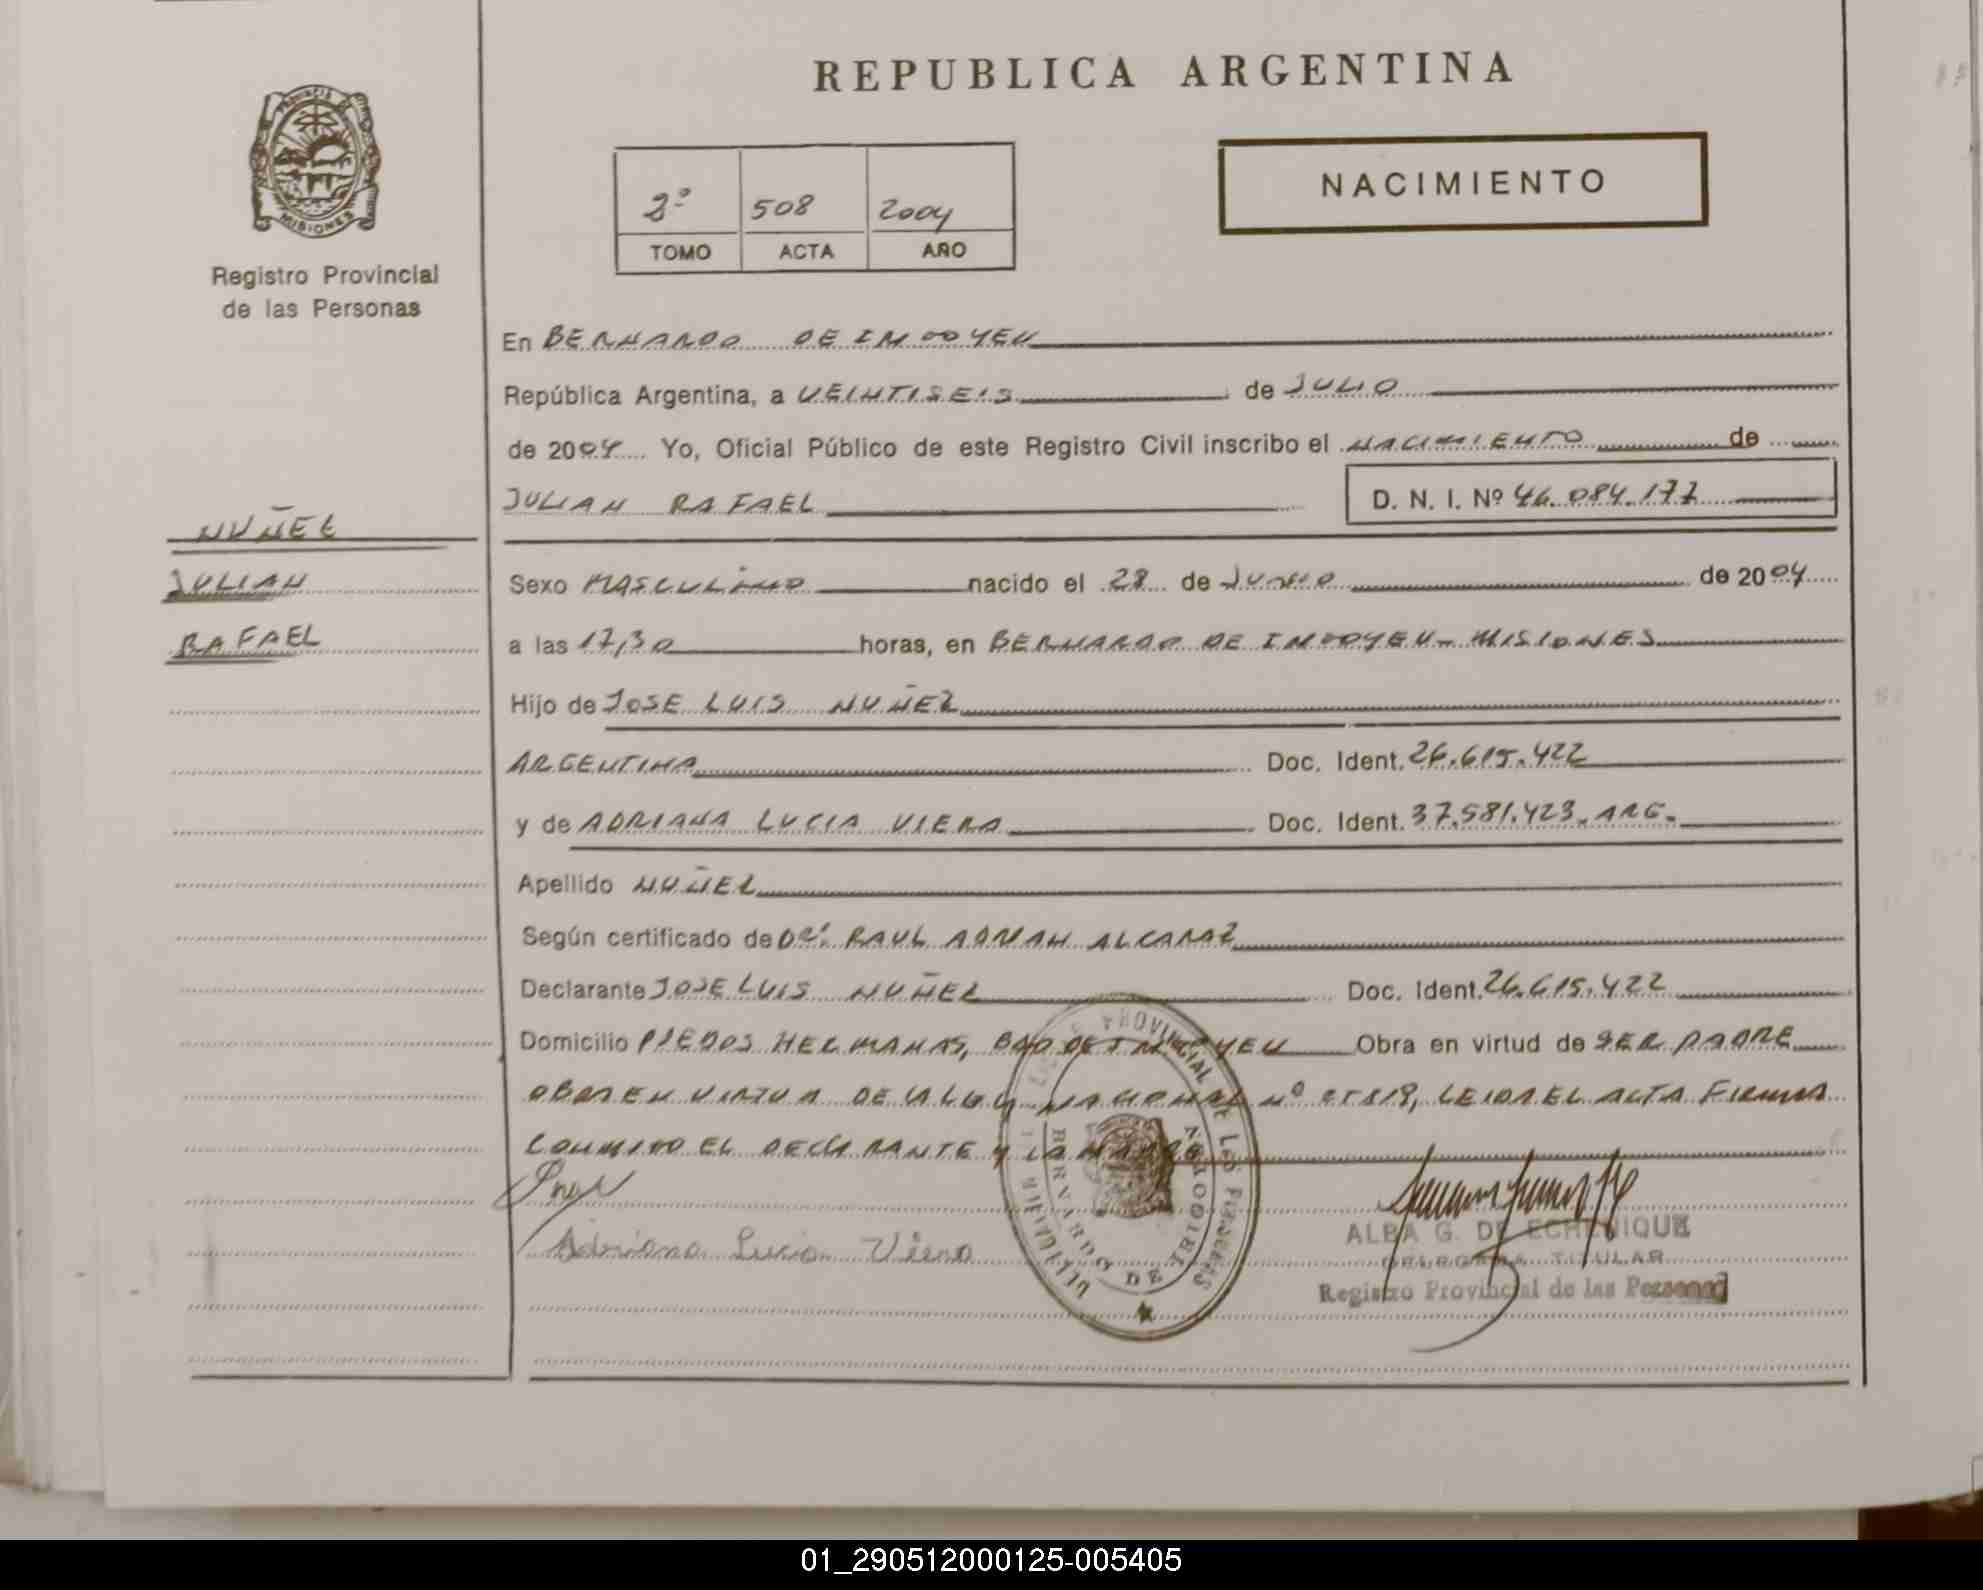 REPUBLICA ARGENTINA
PROVINCIA DE
MISIONES
Registro Provincial
de las Personas
2º 508 2004
TOMO ACTA AÑO
NACIMIENTO
En BERNARDO DE IRIGOYEN
República Argentina, a VEINTISEIS de JULIO
de 2004 Yo, Oficial Público de este Registro Civil inscribo el NACIMIENTO de
JULIAN RAFAEL D. N. I. Nº 46.084.177
NUÑEZ
JULIAN
RAFAEL
Sexo MASCULINO nacido el 28 de JUNIO de 2004
a las 17,30 horas, en BERNARDO DE IRIGOYEN - MISIONES
Hijo de JOSE LUIS NUÑEZ
ARGENTINA Doc. Ident. 26.615.422
y de ADRIANA LUCIA VIERA Doc. Ident. 37.581.423. ARG.
Apellido NUÑEZ
Según certificado de DR. RAUL ADRIAN ALCARAZ
Declarante JOSE LUIS NUÑEZ Doc. Ident. 26.615.422
Domicilio HERMANAS, BDO DE IRIGOYEN Obra en virtud de SER PADRE
OBRA EN VIRTUD DE LA LEY NACIONAL Nº LEIDA EL ACTA FIRMAN
CONMIGO EL DECLARANTE Y LA MADRE
Adriana Lucia Viera
REGISTRO PROVINCIAL DE LAS PERSONAS
BERNARDO DE IRIGOYEN
ALBA G. DE ECHENIQUE
DELEGADA TITULAR
Registro Provincial de las Personas
01_290512000125-005405